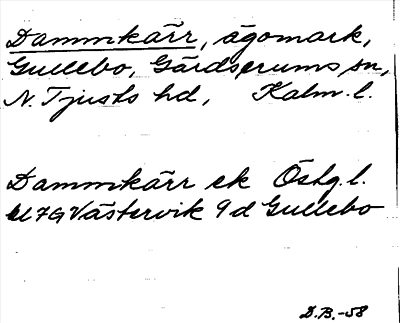 Dammkärr, ägomark,
Gullebo, Gärdserums sn,
N. Tjusts hd, Kalm. l.
Dammkärr ek Östg. l.
bl 7G Västervik 9d Gullebo
D.B.-58